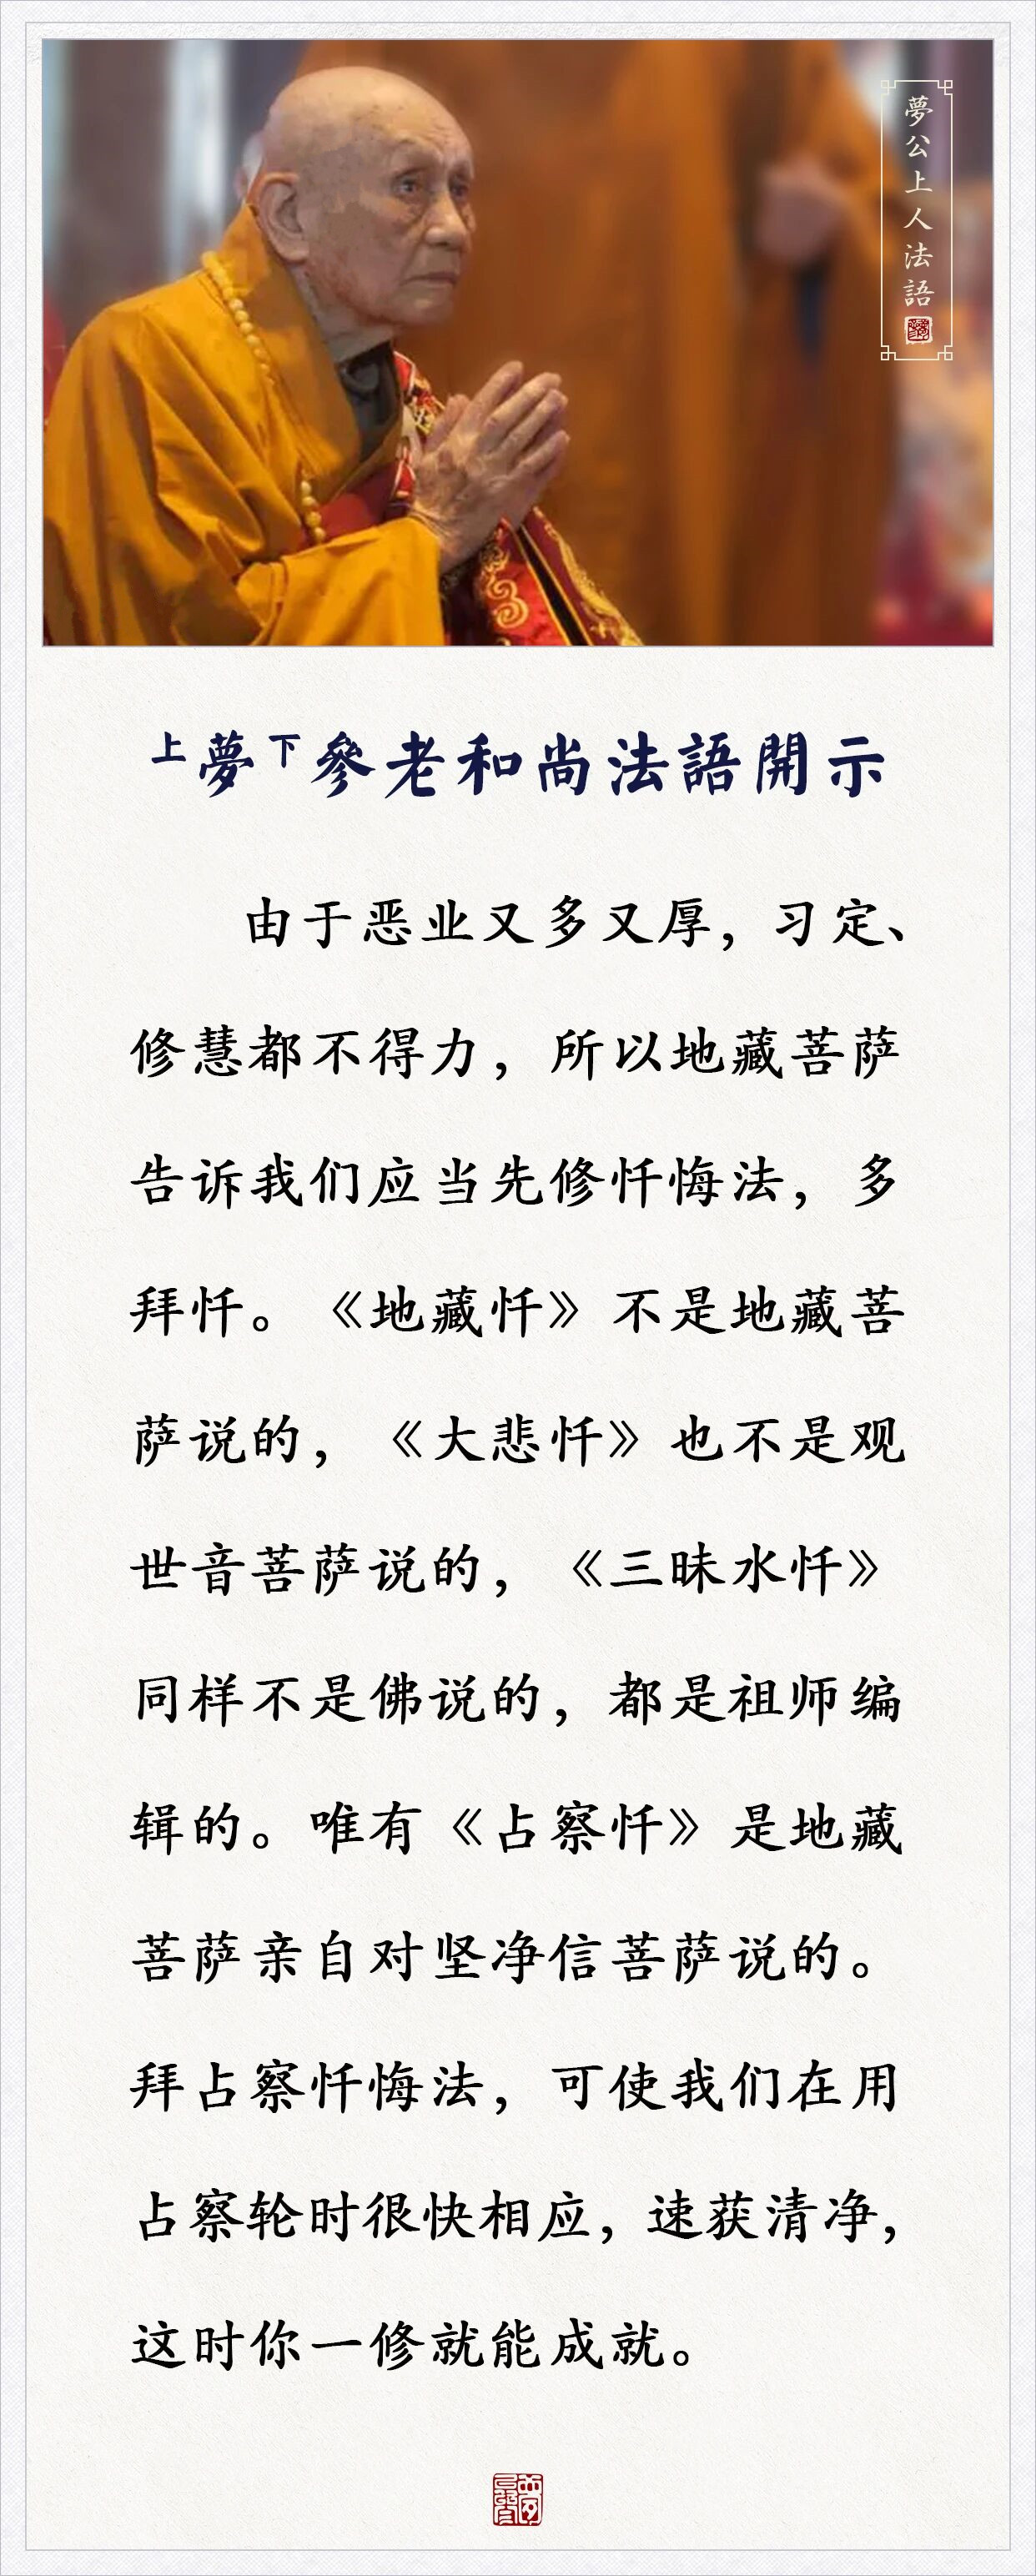 夢公上人法語
上夢下參老和尚法語開示
由于恶业又多又厚，习定、
修慧都不得力，所以地藏菩萨
告诉我们应当先修忏悔法，多
拜忏。《地藏忏》不是地藏菩
萨说的，《大悲忏》也不是观
世音菩萨说的，《三昧水忏》
同样不是佛说的，都是祖师编
辑的。唯有《占察忏》是地藏
菩萨亲自对坚净信菩萨说的。
拜占察忏悔法，可使我们在用
占察轮时很快相应，速获清净，
这时你一修就能成就。